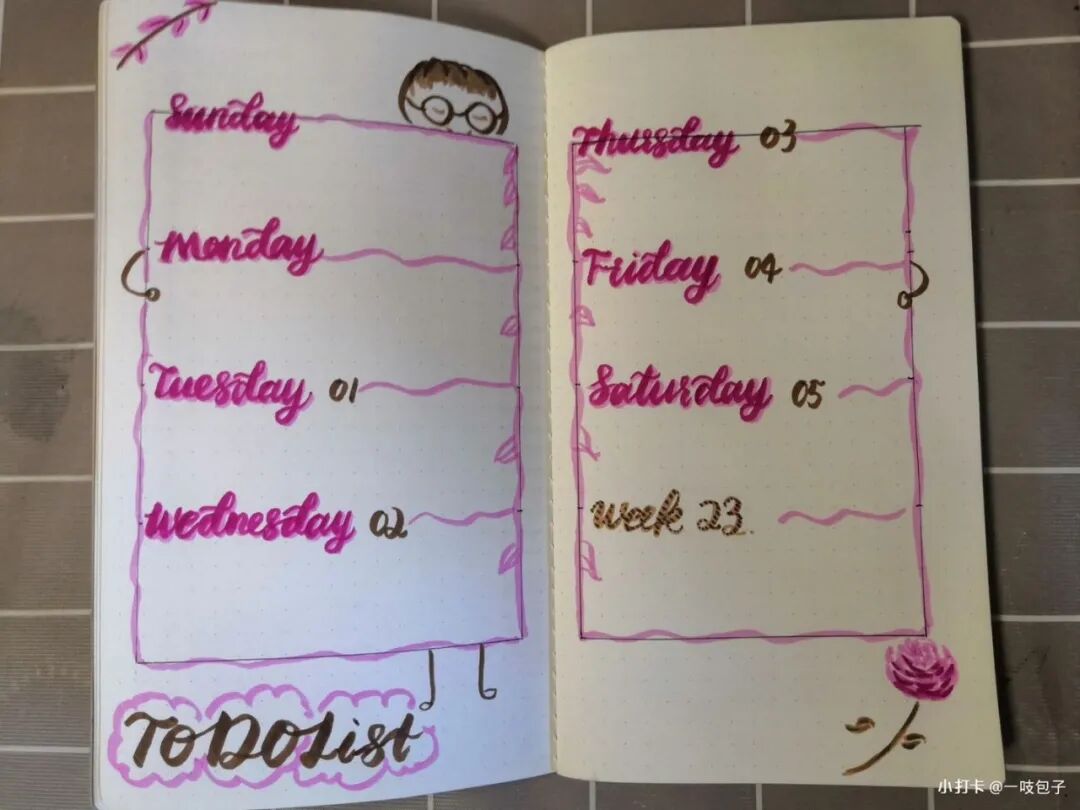 Sunday
Monday
Tuesday 01
Wednesday 02
TODOList
Thursday 03
Friday 04
Saturday 05
Week 23.
小打卡@一吱包子